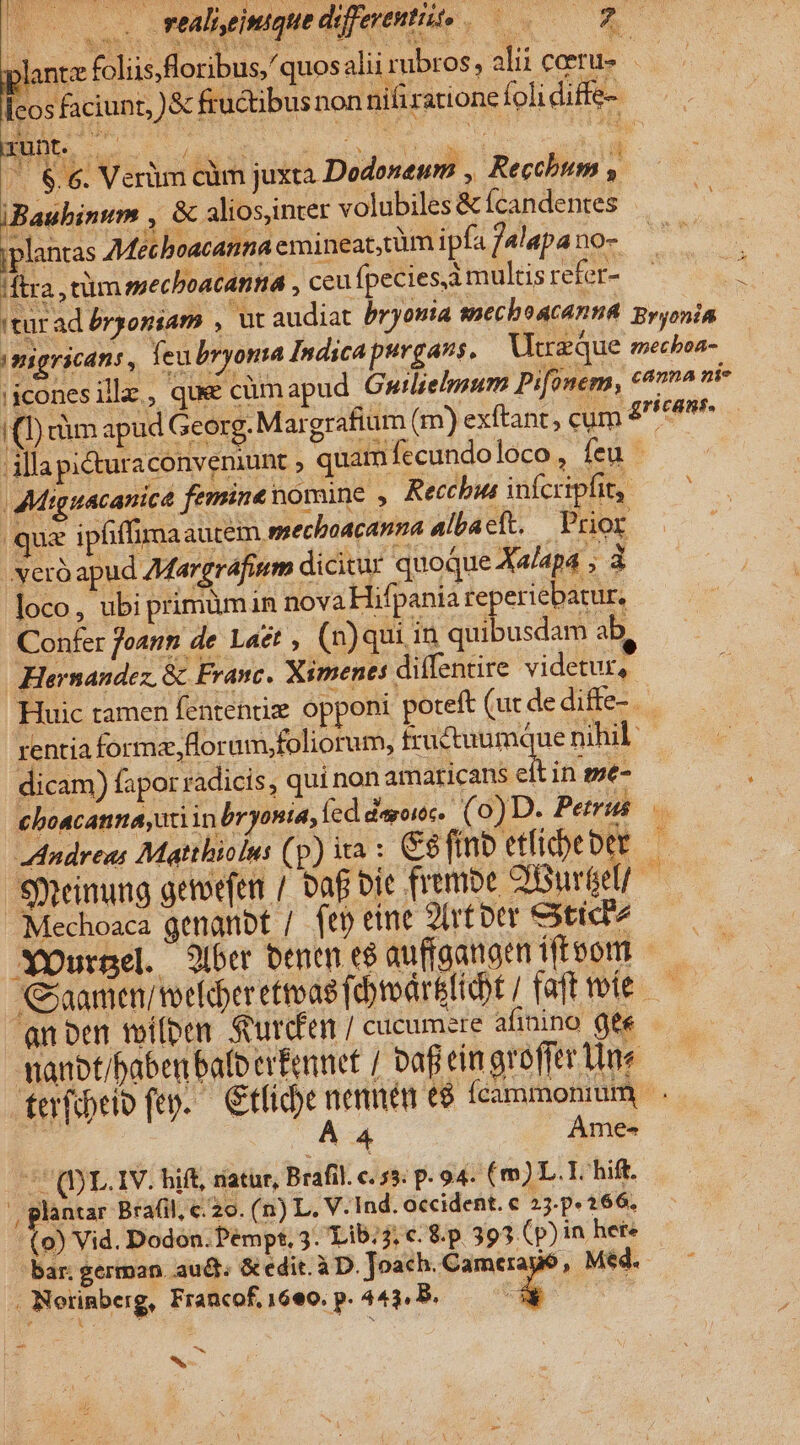 reali, ejusque differentiis. 7
plantæ foliis, floribus, (quos alii rubros, alii cœru-
leos faciunt,) & fructibus non nisi ratione soli diffe-
runt.
§. 6. Verùm cùm juxta Dodonæum, Recchum,
Bauhinum, & alios, inter volubiles & scandentes
plantas Mechoacanna emineat, tùm ipsa Jalapa no-
stra, tùm mechoacanna, ceu species, à multis refer-
tur ad bryoniam, ut audiat bryonia mechoacanna
nigricans, seu bryonia Indica purgans. Utræque
icones illæ, quæ cùm apud Guilielmum Pisonem,
(l) tùm apud Georg. Margrafium (m) exstant, cum
illa pictura conveniunt, quam secundo loco, seu
Miguacanica feminæ nomine, Recchus inscripsit,
quæ ipsissima autem mechoacanna alba est. Prior
verò apud Margrafium dicitur quoque Xalapa, à
loco, ubi primùm in nova Hispania reperiebatur.
Confer Joann de Laët, (n) qui in quibusdam ab
Hernandez & Franc. Ximenes dissentire videtur.
Huic tamen sententiæ opponi potest (ut de diffe-
rentia formæ, florum, foliorum, fructuumque nihil
dicam) sapor radicis, qui non amaricans est in me-
choacanna, uti in bryonia, sed ἄποιος. (o) D. Petrus
Andreas Matthiolus (p) ita: Es sind etliche der
Meinung gewesen / daß die fremde Wurtzel/
Mechoaca genandt / sey eine Art der Stick-
Wurtzel. Aber denen es auffgangen ist vom
Saamen/ welcher etwas schwärtzlicht / fast wie
an den wilden Kurcken / cucumere asinino ge-
nandt/ haben bald erkennet / daß ein grosser Un-
terscheid sey. Etliche nennen es scammonium
A 4 Ame-
Bryonia
mechoa-
canna ni-
gricans.
(l) L. IV. hist. natur, Brasil. c. 53. p. 94. (m) L. I. hist.
plantar Brasil. c. 20. (n) L. V. Ind. occident. c 23. p. 266.
(o) Vid. Dodon. Pempt. 3. Lib. 3. c. 8. p 393. (p) in her-
bar. german auct. & edit. à D. Joach. Camerario, Med.
Norinberg, Francof. 1600. p. 443. B.